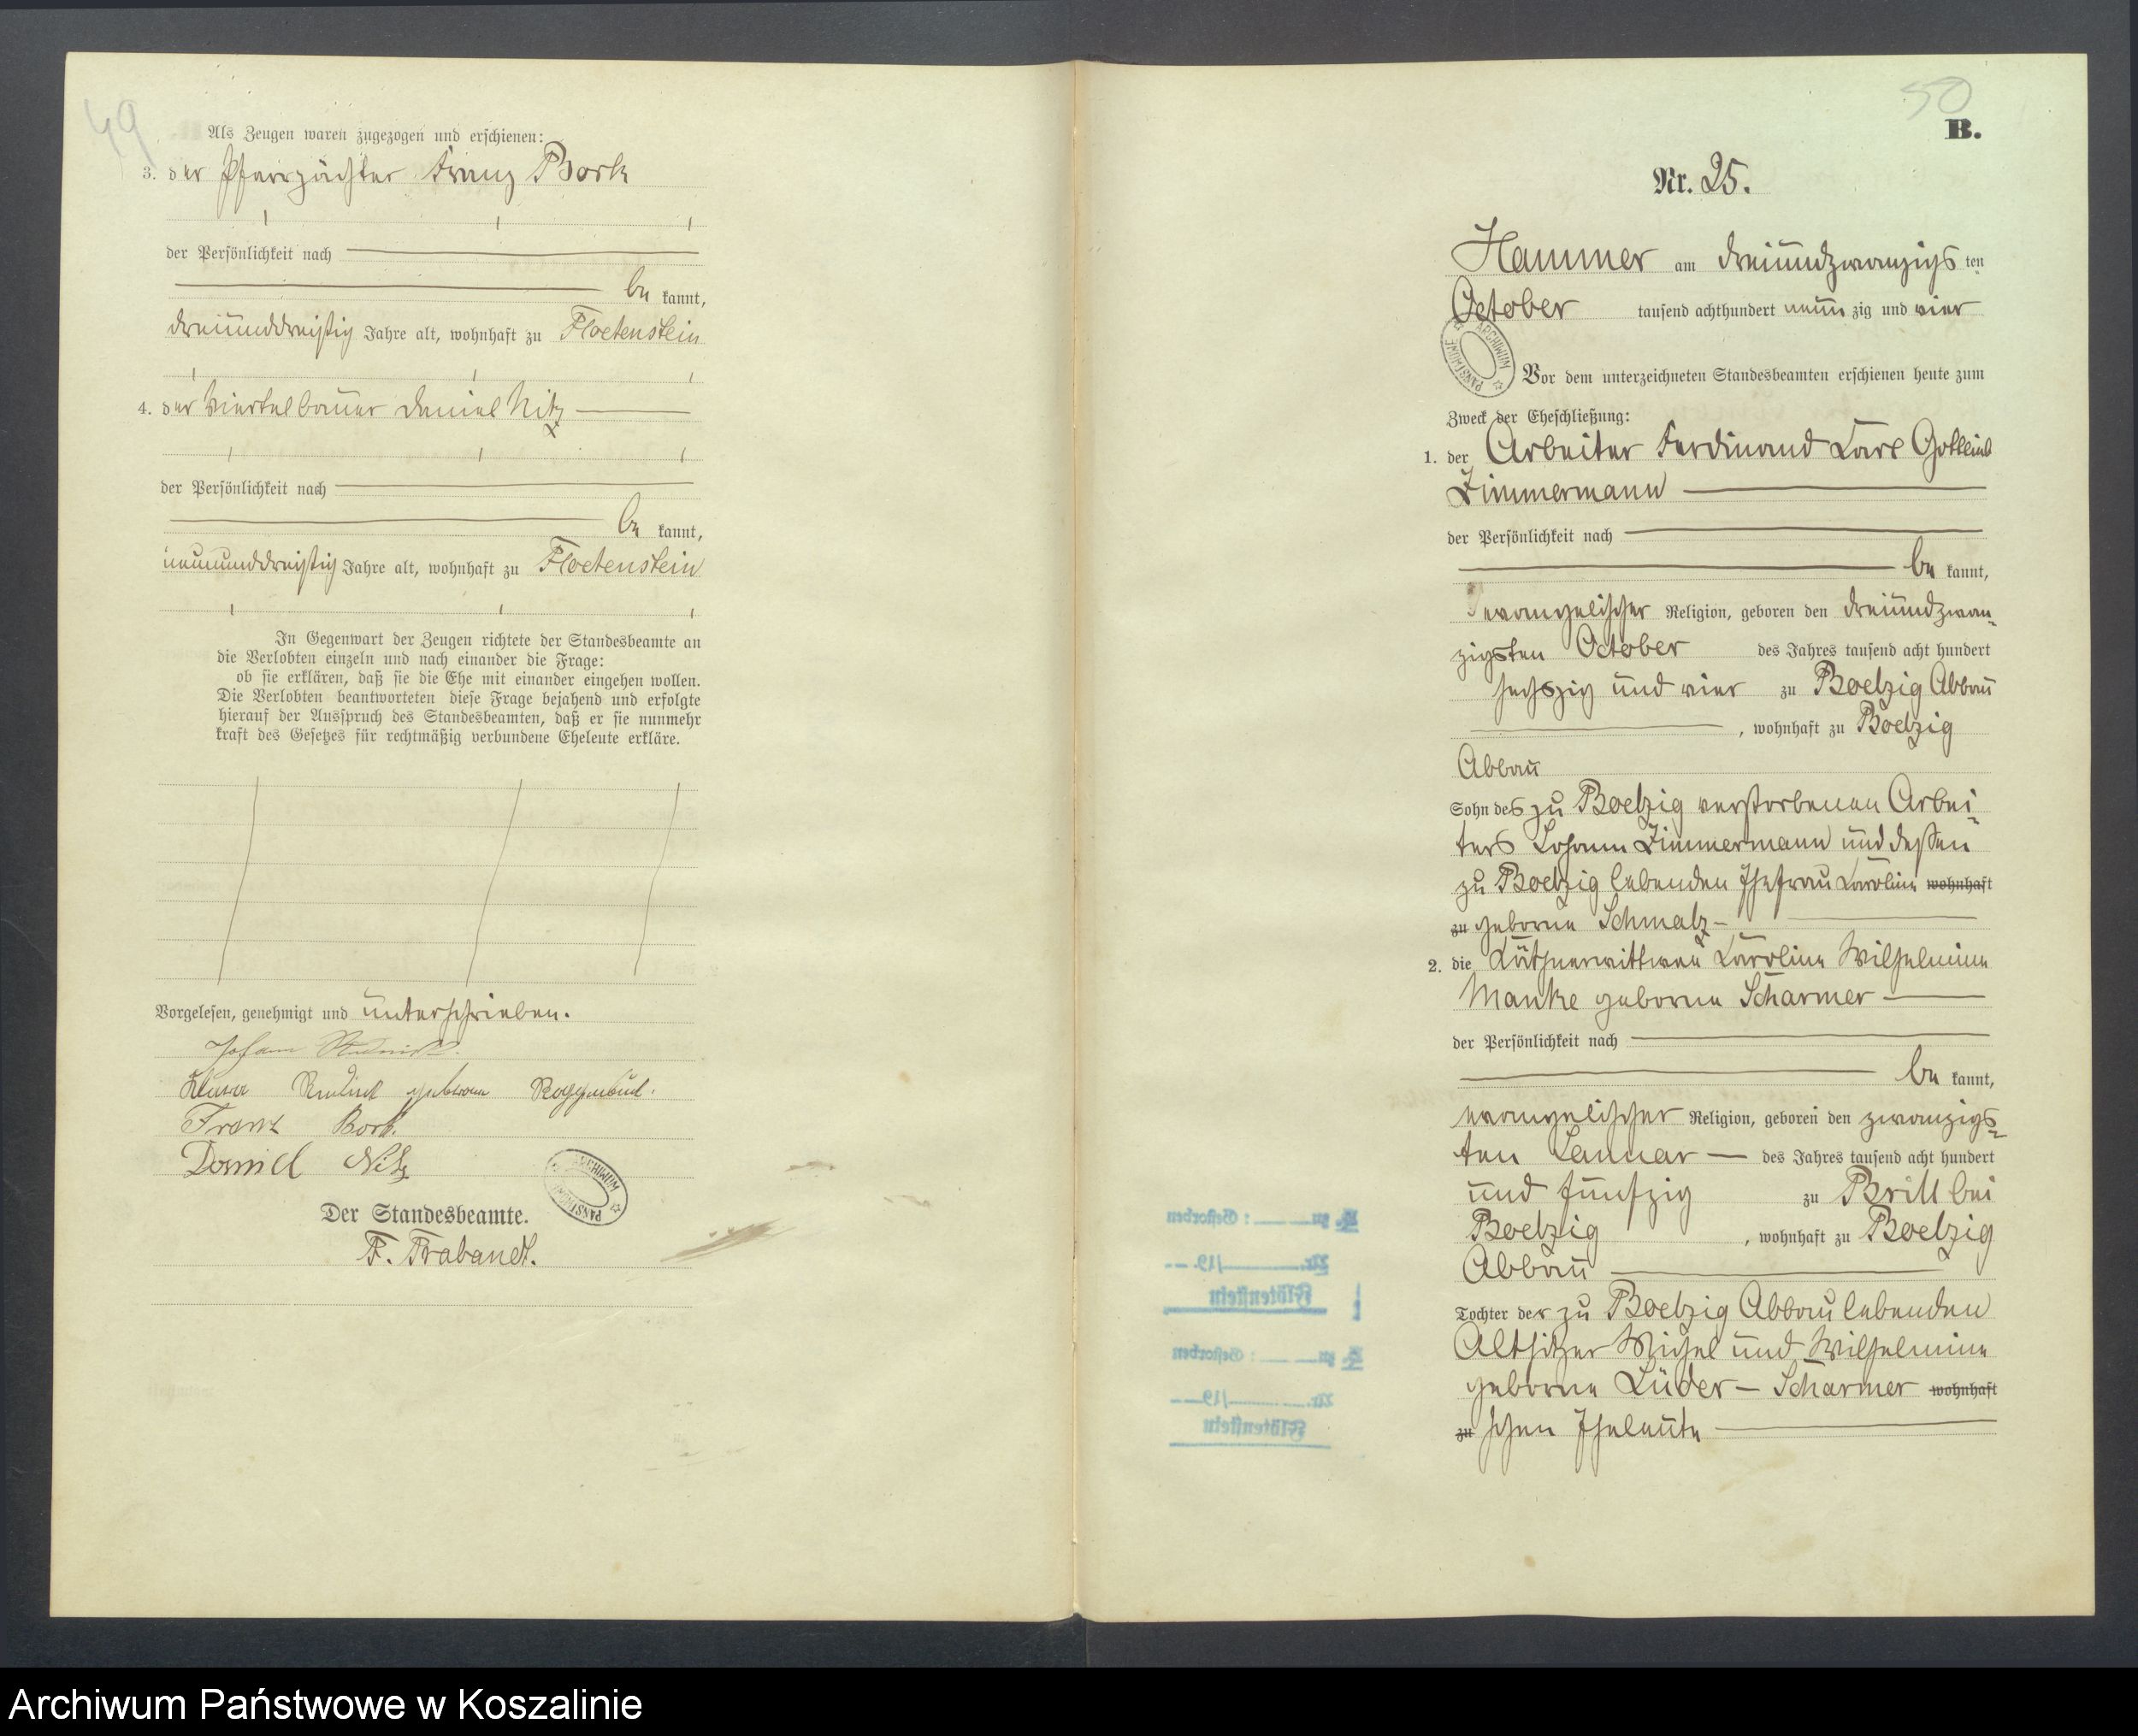 49
Als Zeugen waren zugezogen und erschienen:
3. der Pfarrpächter Franz Bork
der Persönlichkeit nach
be kannt,
dreiunddreißig Jahre alt, wohnhaft zu Floetenstein
4. der Viertelbauer Daniel Nitz
der Persönlichkeit nach
be kannt,
neununddreißig Jahre alt, wohnhaft zu Floetenstein
In Gegenwart der Zeugen richtete der Standesbeamte an
die Verlobten einzeln und nach einander die Frage:
ob sie erklären, daß sie die Ehe mit einander eingehen wollen.
Die Verlobten beantworteten diese Frage bejahend und erfolgte
hierauf der Ausspruch des Standesbeamten, daß er sie nunmehr
kraft des Gesetzes für rechtmäßig verbundene Eheleute erkläre.
Vorgelesen, genehmigt und unterschrieben.
Johann
geborene
Franz Bork.
Daniel Nitz
ARCHIWUM PAŃSTWOWE
Der Standesbeamte.
F. Trabandt.
50
B.
Nr. 25.
Hammer am dreiundzwanzigs ten
October tausend achthundert neun zig und vier
ARCHIWUM PAŃSTWOWE
Vor dem unterzeichneten Standesbeamten erschienen heute zum
Zweck der Eheschließung:
1. der Arbeiter Ferdinand Carl Gottlieb
Zimmermann
der Persönlichkeit nach
be kannt,
evangelischer Religion, geboren den dreiundzwan-
zigsten October des Jahres tausend acht hundert
sechszig und vier zu Boelzig Abbau
, wohnhaft zu Boelzig
Abbau
Sohn des zu Boelzig verstorbenen Arbei-
ters Johann Zimmermann und dessen
zu Boelzig lebenden Ehefrau Caroline wohnhaft
zu geborne Schmalz -
2. die Käthnerwittwe Caroline Wilhelmine
Manke geborne Scharmer
der Persönlichkeit nach
be kannt,
evangelischer Religion, geboren den zwanzigs-
ten Januar des Jahres tausend acht hundert
und fünfzig zu Brill bei
Boelzig , wohnhaft zu Boelzig
Abbau
Tochter der zu Boelzig Abbau lebenden
Altsitzer Michel und Wilhelmine
geborne Lüder - Scharmer wohnhaft
zu schen Eheleute
Gestorben
Nr. /19
Flötenstein
Gestorben
Nr. /19
Flötenstein
Archiwum Państwowe w Koszalinie